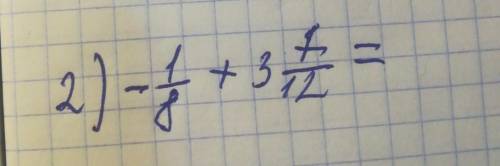 2) - 1/8 + 3 7/12 =